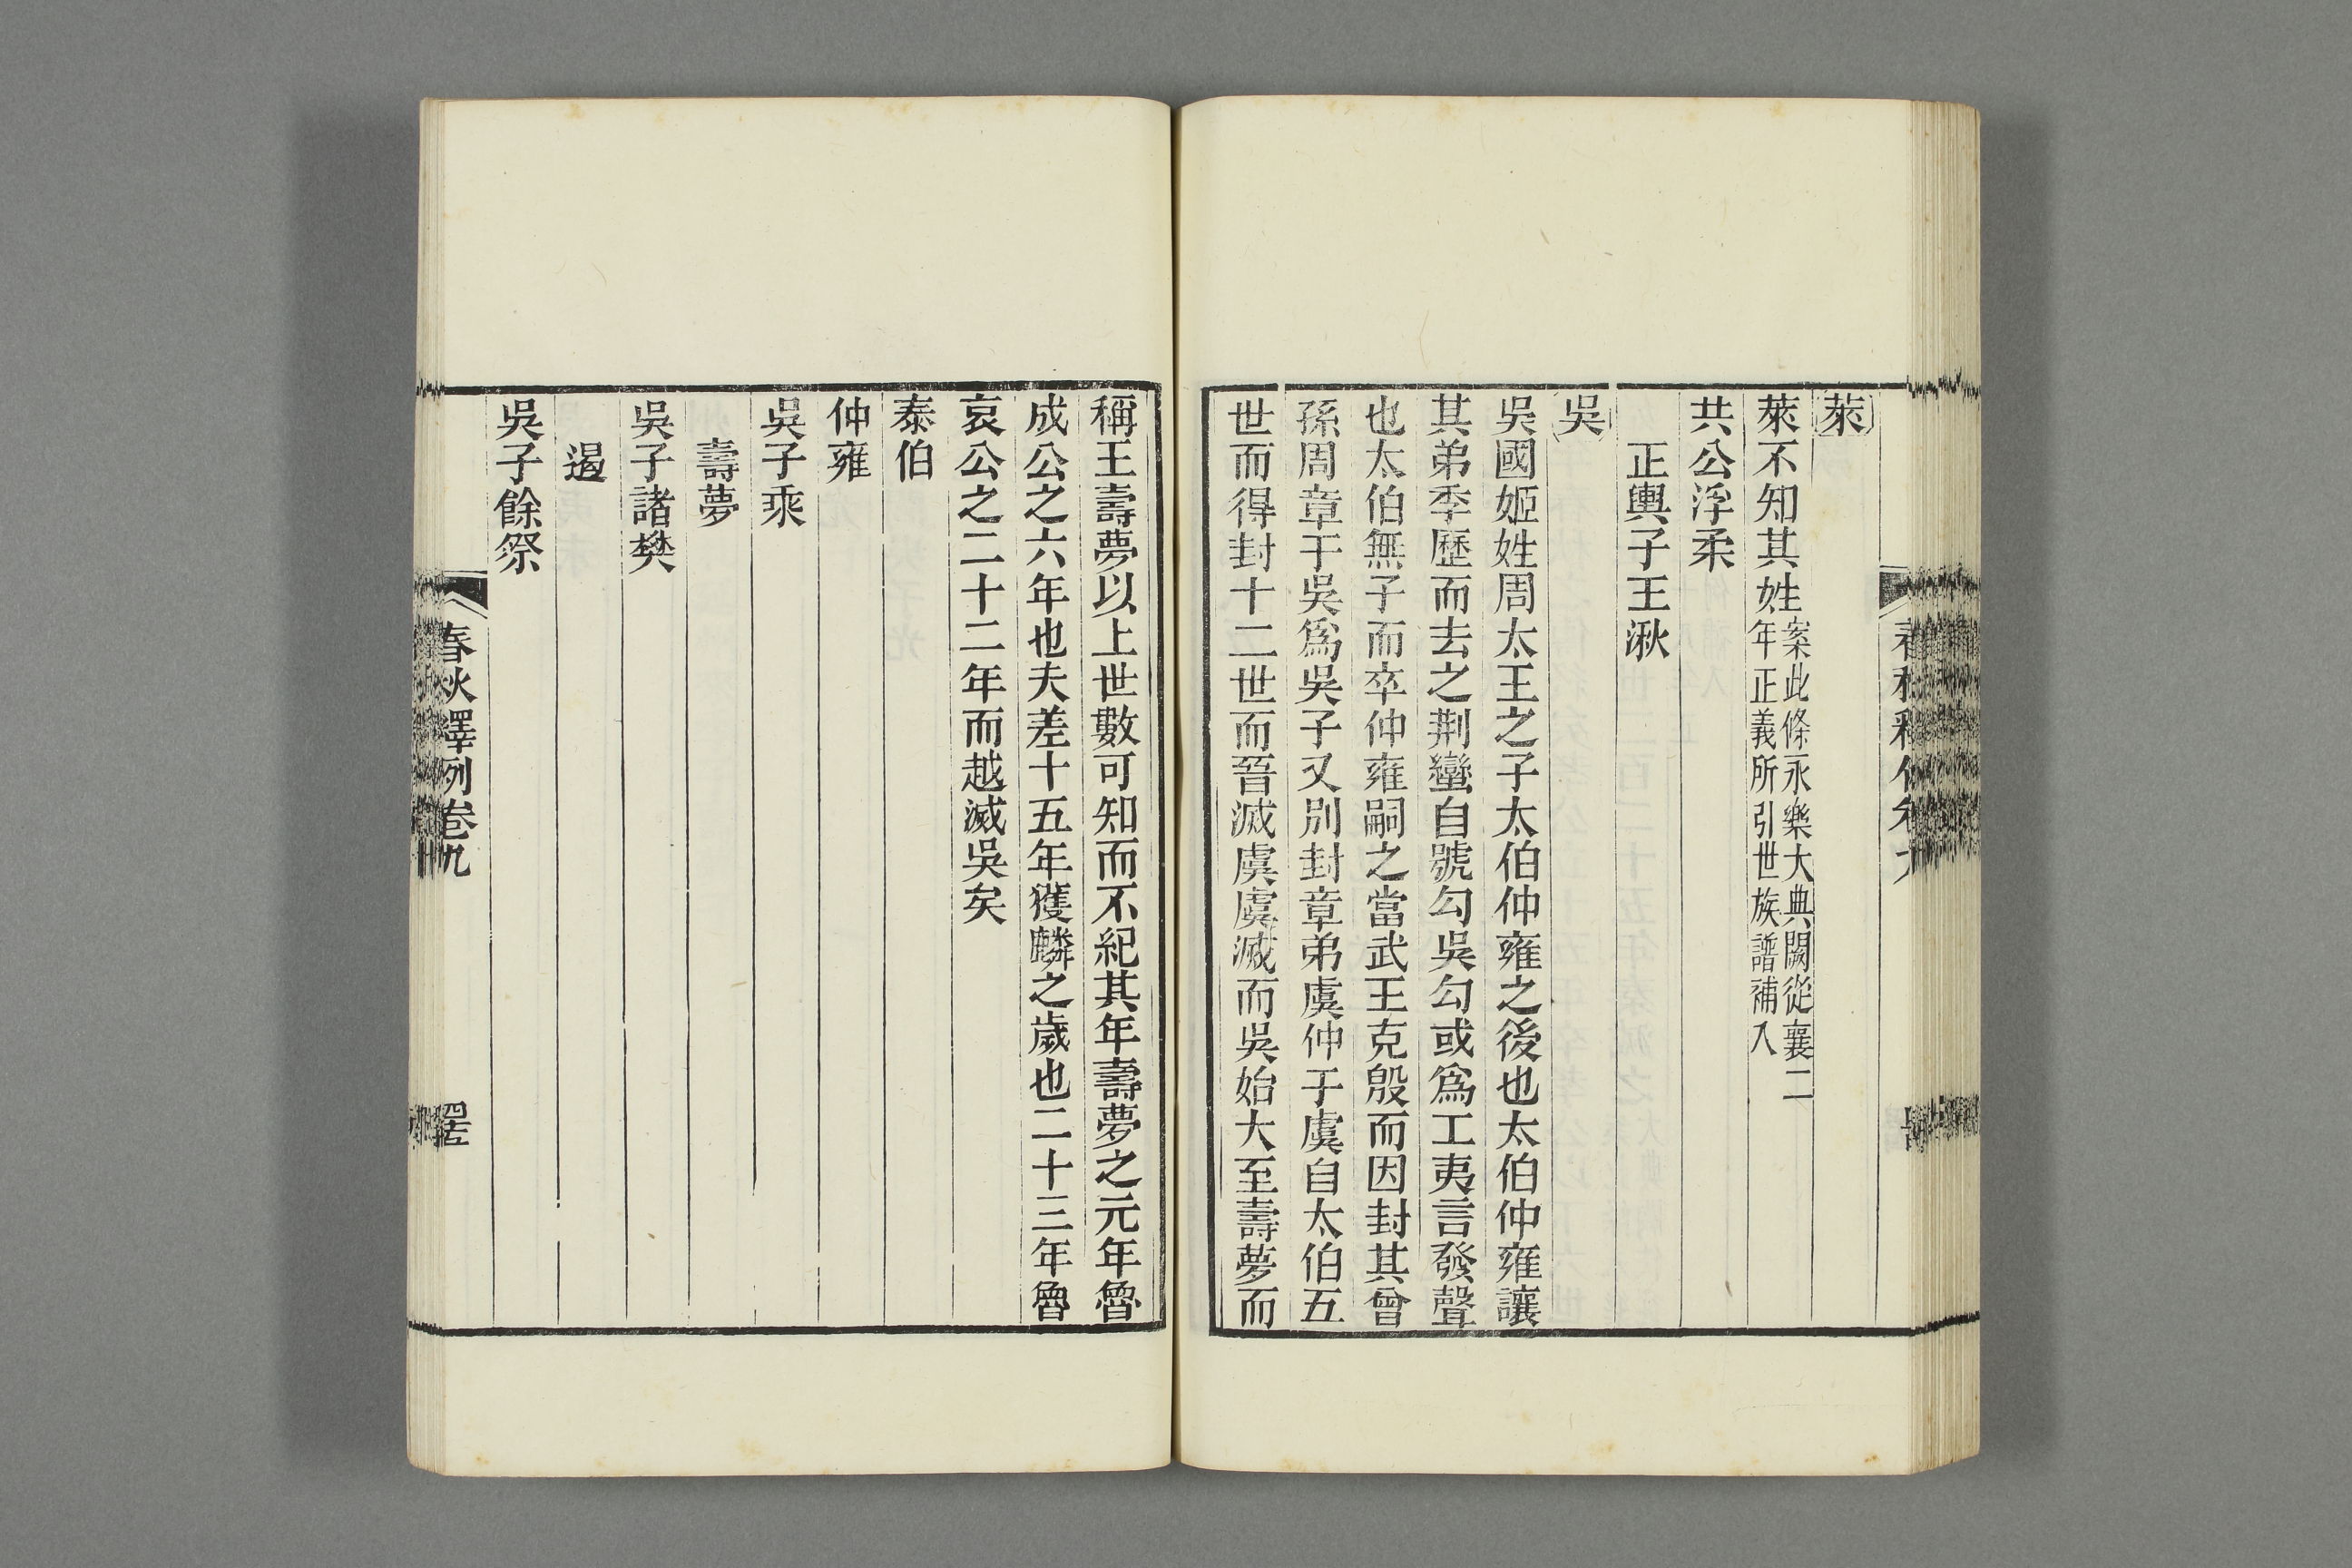 萊
萊不知其姓案此條永樂大典闕從襄二
年正義所引世族譜補入
共公浮柔
正輿子王湫
吳
吳國姬姓周太王之子太伯仲雍之後也太伯仲雍讓
其弟季歷而去之荆蠻自號勾吳勾或爲工夷言發聲
也太伯無子而卒仲雍嗣之當武王克殷而因封其曾
孫周章于吳爲吳子又別封章弟虞仲于虞自太伯五
世而得封十二世而晉滅虞虞滅而吳始大至壽夢而
稱王壽夢以上世數可知而不紀其年壽夢之元年魯
成公之六年也夫差十五年獲麟之歲也二十三年魯
哀公之二十二年而越滅吳矣
泰伯
仲雍
吳子乘
壽夢
吳子諸樊
遏
吳子餘祭
春秋釋例卷九